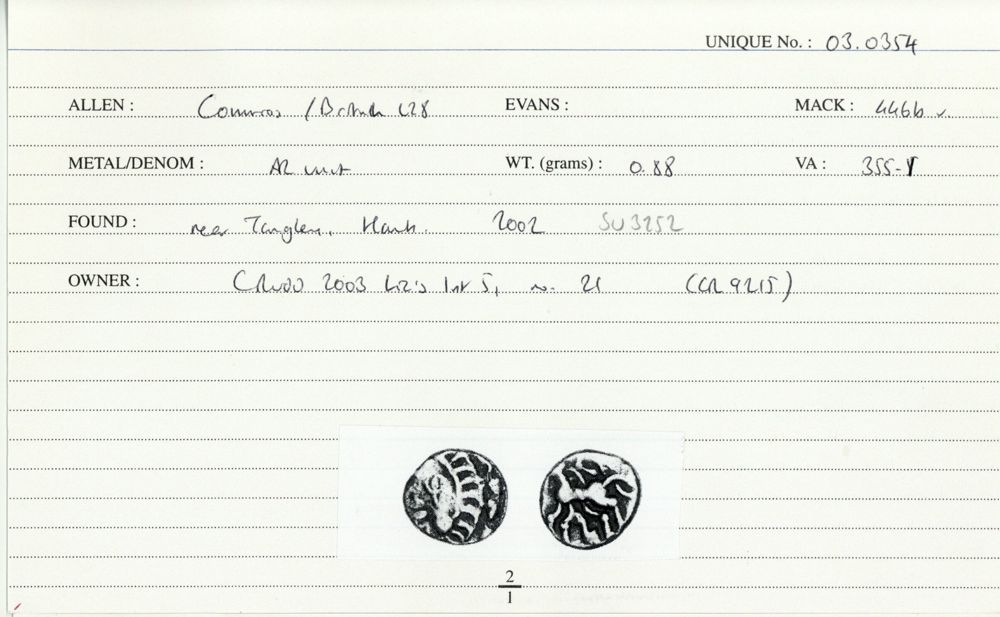 UNIQUE No. : 03.0354
ALLEN : Commios / British L28 EVANS : MACK : 446b
METAL/DENOM : AR unit WT. (grams) : 0.88 VA : 355-
FOUND : near Tangley, Hants. 2002 SU3252
OWNER : 2003 List 5, no. 21 (CR 9215)
2
1